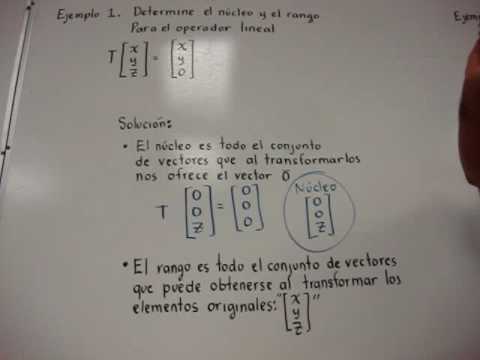 Ejemplo 1. Determine el núcleo y el rango
Para el operador lineal
T [x y z] = [x y 0]
Solución:
• El núcleo es todo el conjunto
de vectores que al transformarlos
nos ofrece el vector 0̄
Núcleo
T [0 0 z] = [0 0 0] [0 0 z]
• El rango es todo el conjunto de vectores
que puede obtenerse al transformar los
elementos originales: "[x y z]"
Ejem